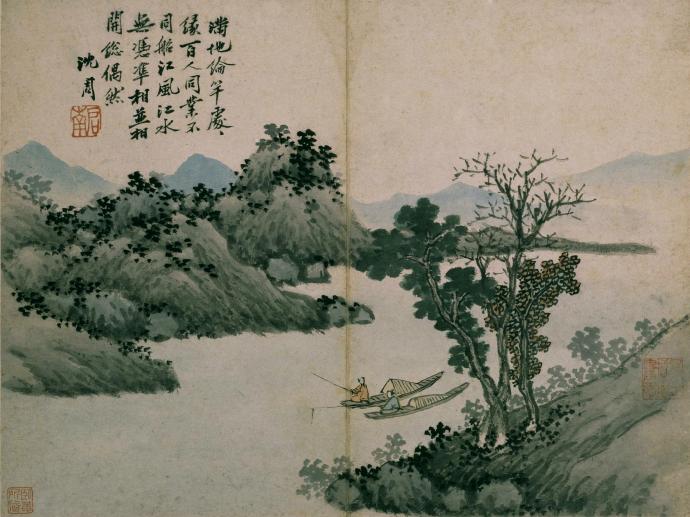 滿地綸竿處處
緣百人同業不
同船江風江水
無憑準相並相
開總偶然
沈周
啟南